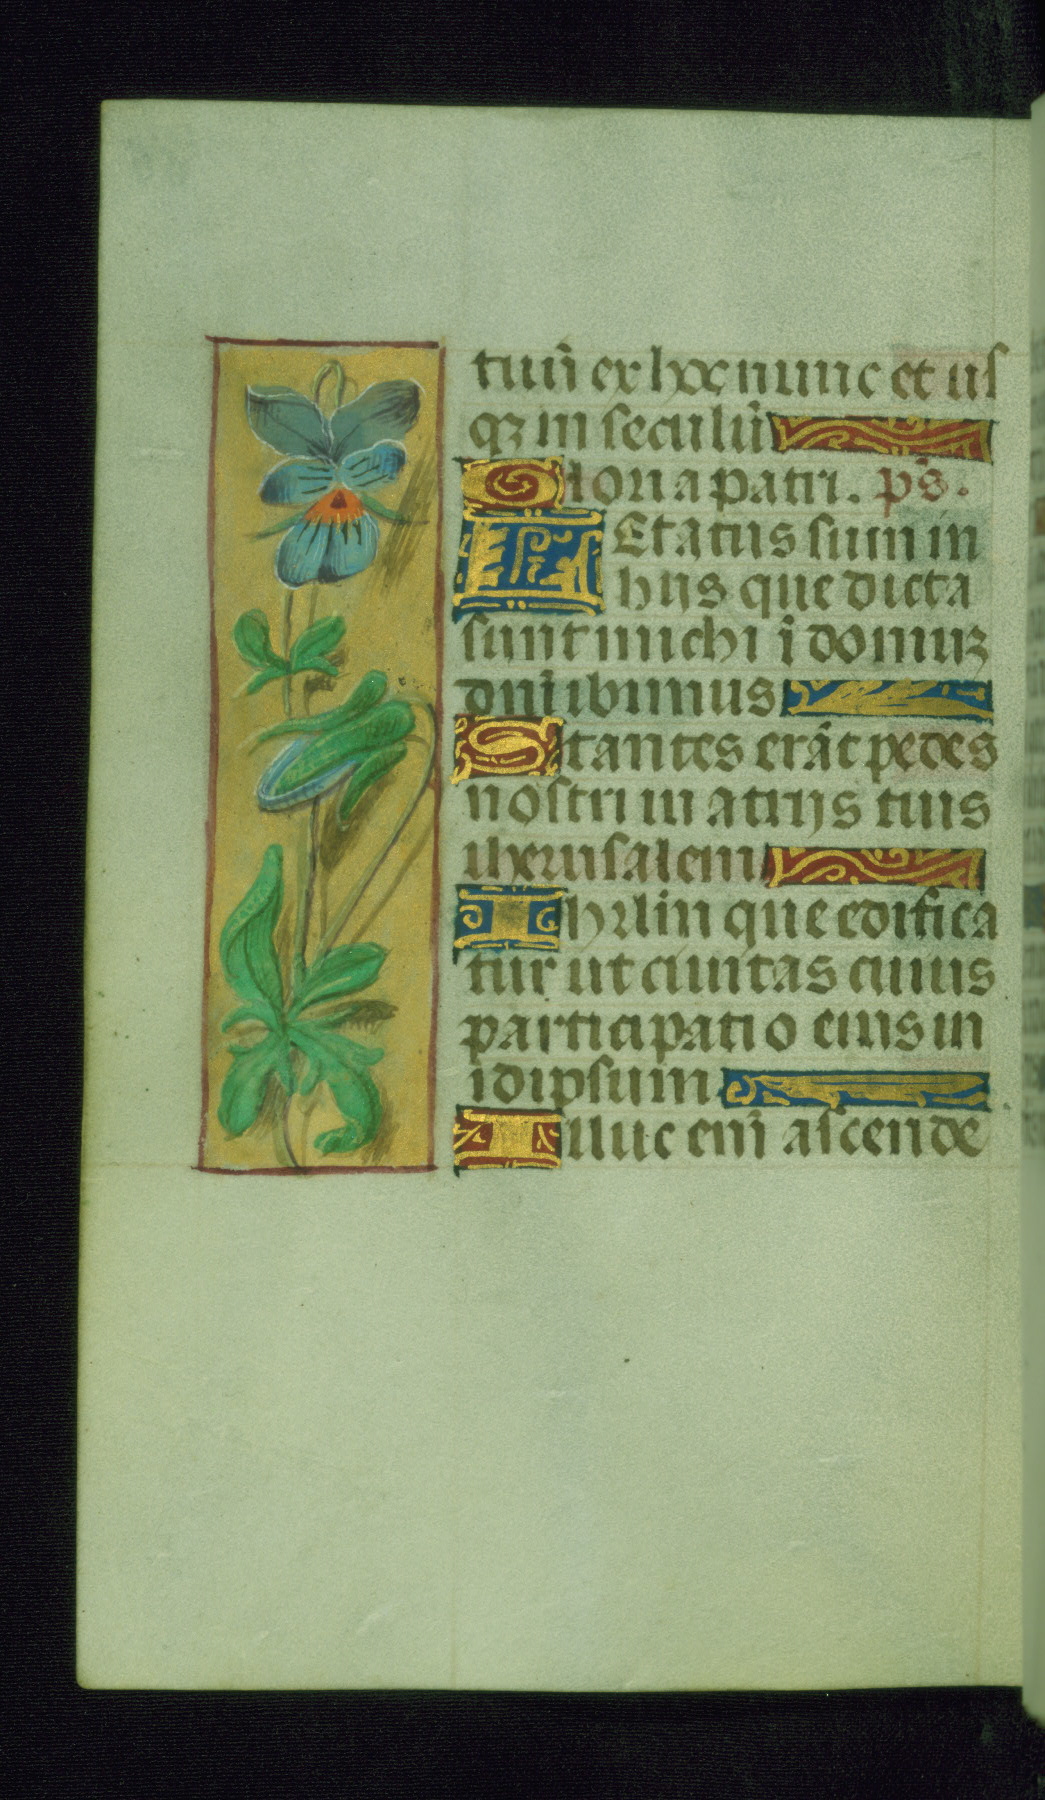 tuū ex hoc nunc et us
qꝫ in seculū
Gloria patri. ps̄.
LEtatus sum in
hijs que dicta
sunt michi ī domuꝫ
dnī ibimus
Stantes erāt pedes
nostri in atrijs tuis
iherusalem
Ihrl̄m que edifica
tur ut ciuitas cuius
participatio eius in
idipsum
Illuc enī ascende